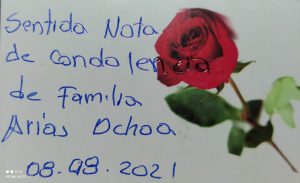 Sentida Nota
de condolencia
de Familia
Arias Ochoa
08.08.2021